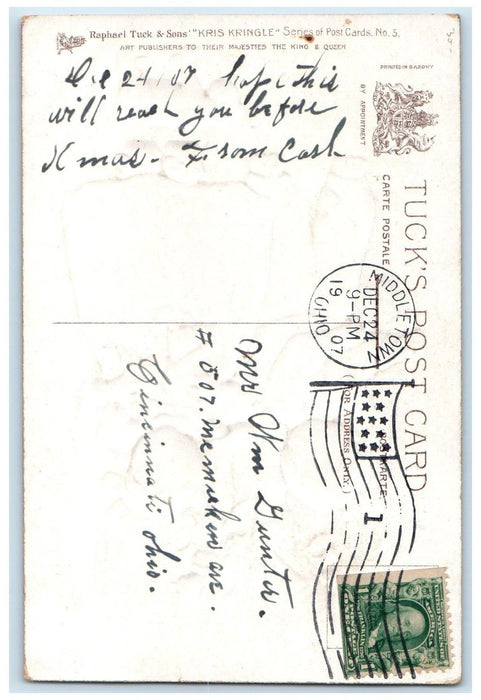 Raphael Tuck & Sons' "KRIS KRINGLE" Series of Post Cards, No. 5.
ART PUBLISHERS TO THEIR MAJESTIES THE KING & QUEEN
PRINTED IN SAXONY
BY APPOINTMENT
Dec 24/07 hope this
will reach you before
Xmas. From Cash
TUCK'S POST CARD
CARTE POSTALE
POSTKARTE
(FOR ADDRESS ONLY.)
MIDDLETOWN
DEC 24
9-PM
19 07
OHIO
1
Mr Wm Gunter.
# 807. McMacken av.
Cincinnati Ohio.